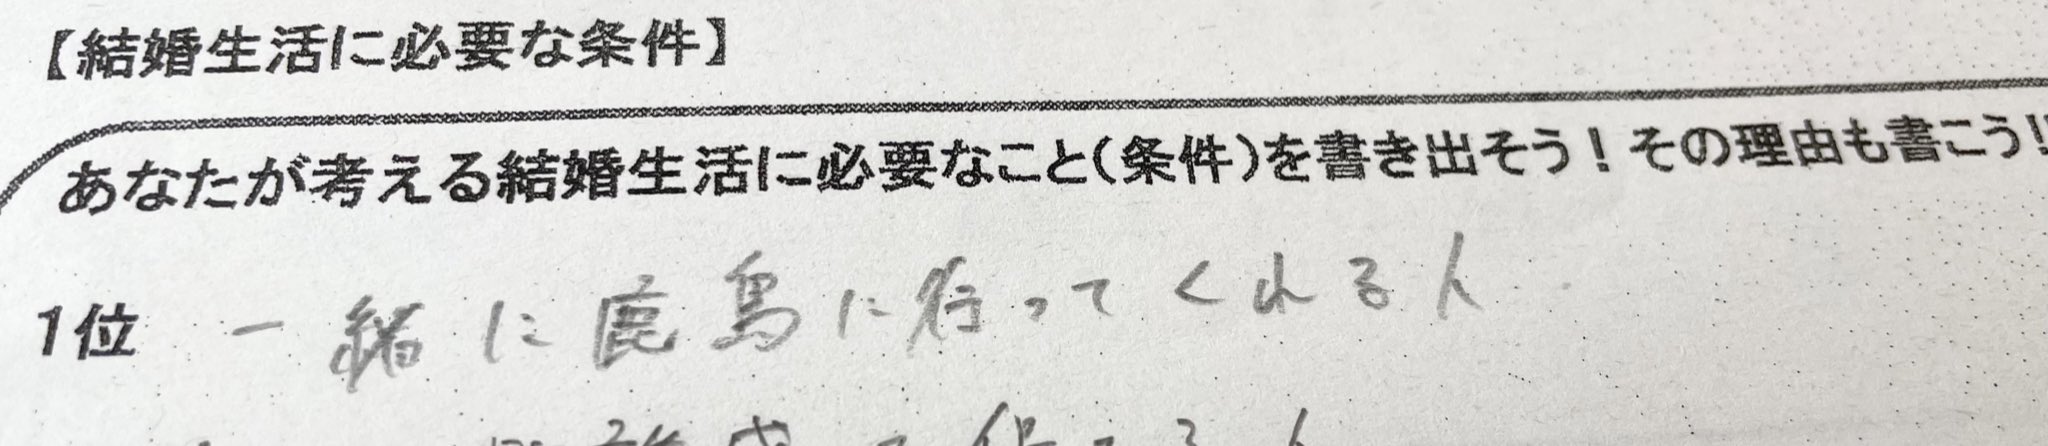 【結婚生活に必要な条件】
あなたが考える結婚生活に必要なこと(条件)を書き出そう！その理由も書こう!!
1位 一緒に鹿島に行ってくれる人